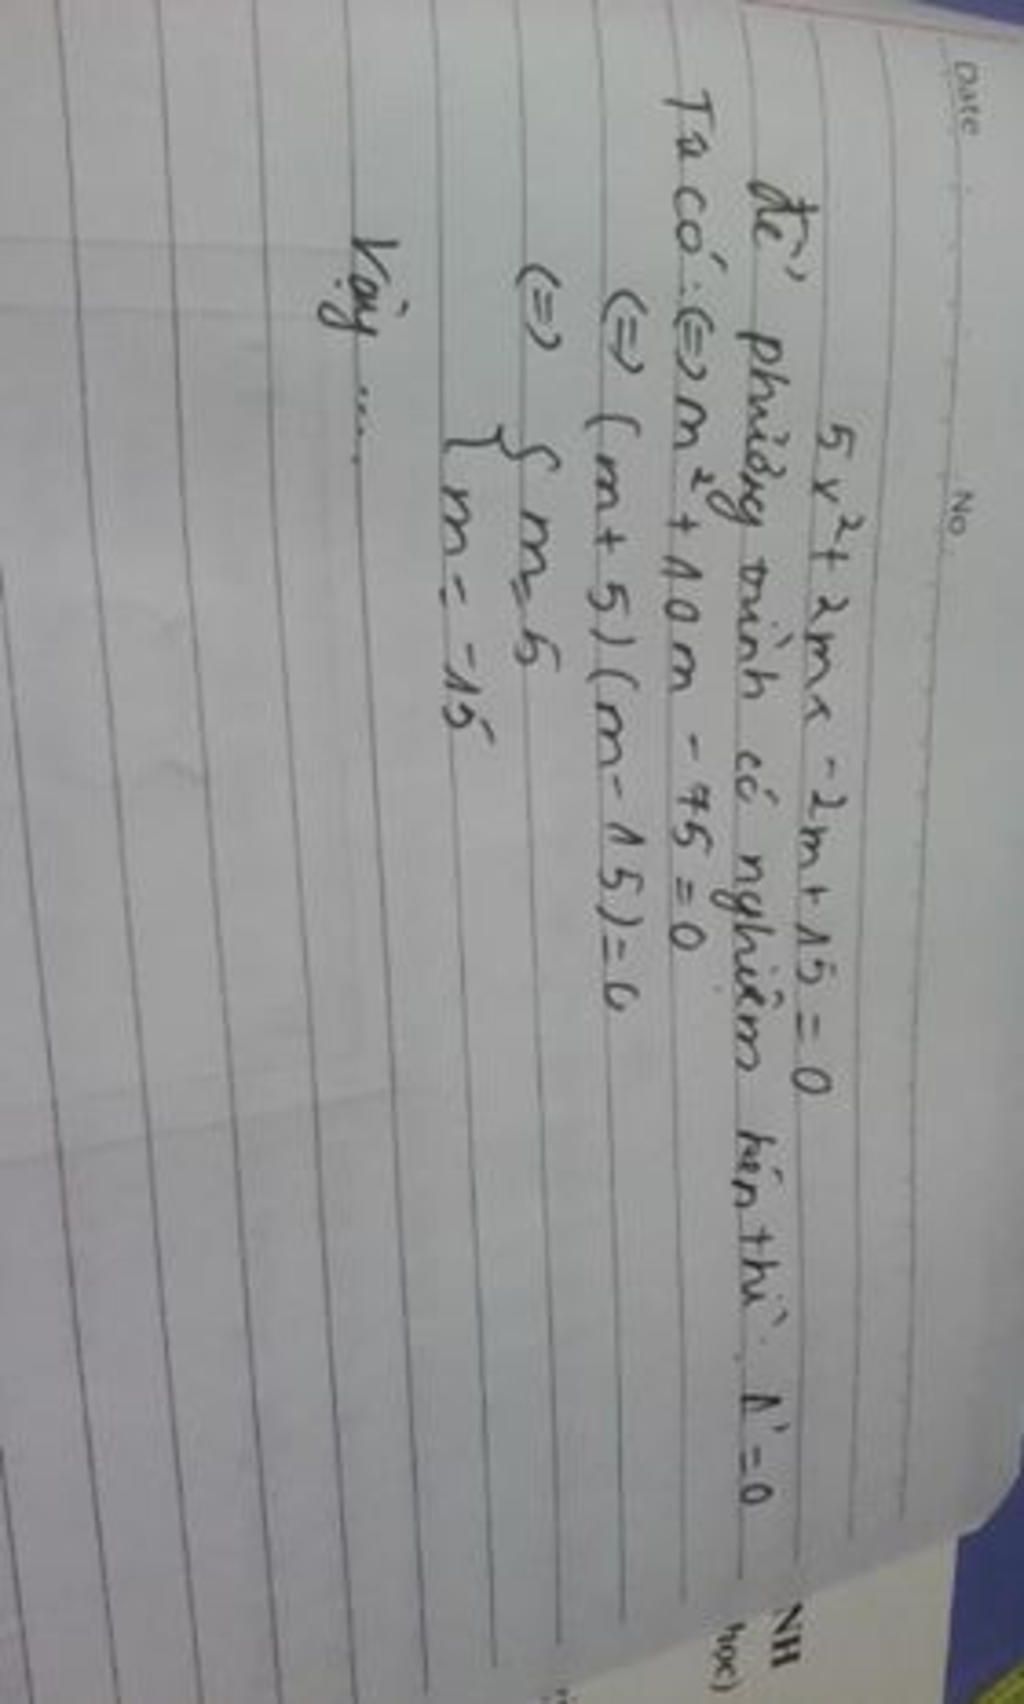 Date No.
5x² + 2mx - 2m + 15 = 0
để phương trình có nghiệm kép thì Δ' = 0
Ta có: (=) m² + 10m - 75 = 0
(=) (m + 5) (m - 15) = 0
(=) { m = 5
m = -15
Vậy ....
NH
học)